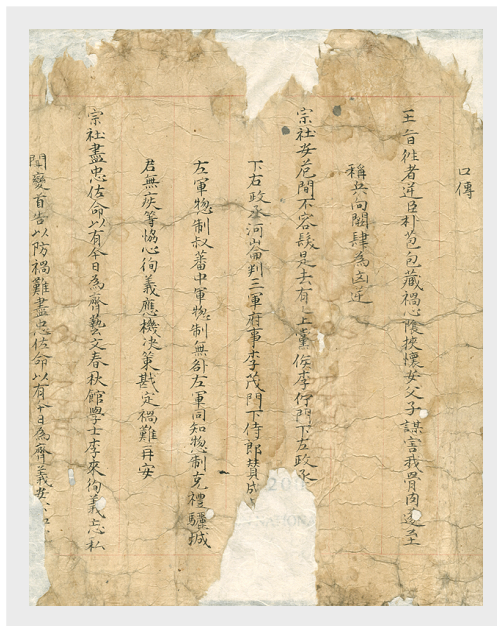 口傳
王旨徃者逆臣朴苞包藏禍心陰挾懷安父子謀害我骨肉遂至
稱兵向闕肆爲凶逆
宗社安危間不容髮是去有上黨侯李佇門下左政丞
下右政丞河崙判三軍府事李茂門下侍郞賛成
左軍惣制叔蕃中軍惣制無咎左軍同知惣制克禮驪城
君無疾等恊心徇義應機决策戡定禍難再安
宗社盡忠佐命以有今日爲齊藝文春秋館學士李來徇義忘私
聞變首告以防禍難盡忠佐命以有今日爲齊義安